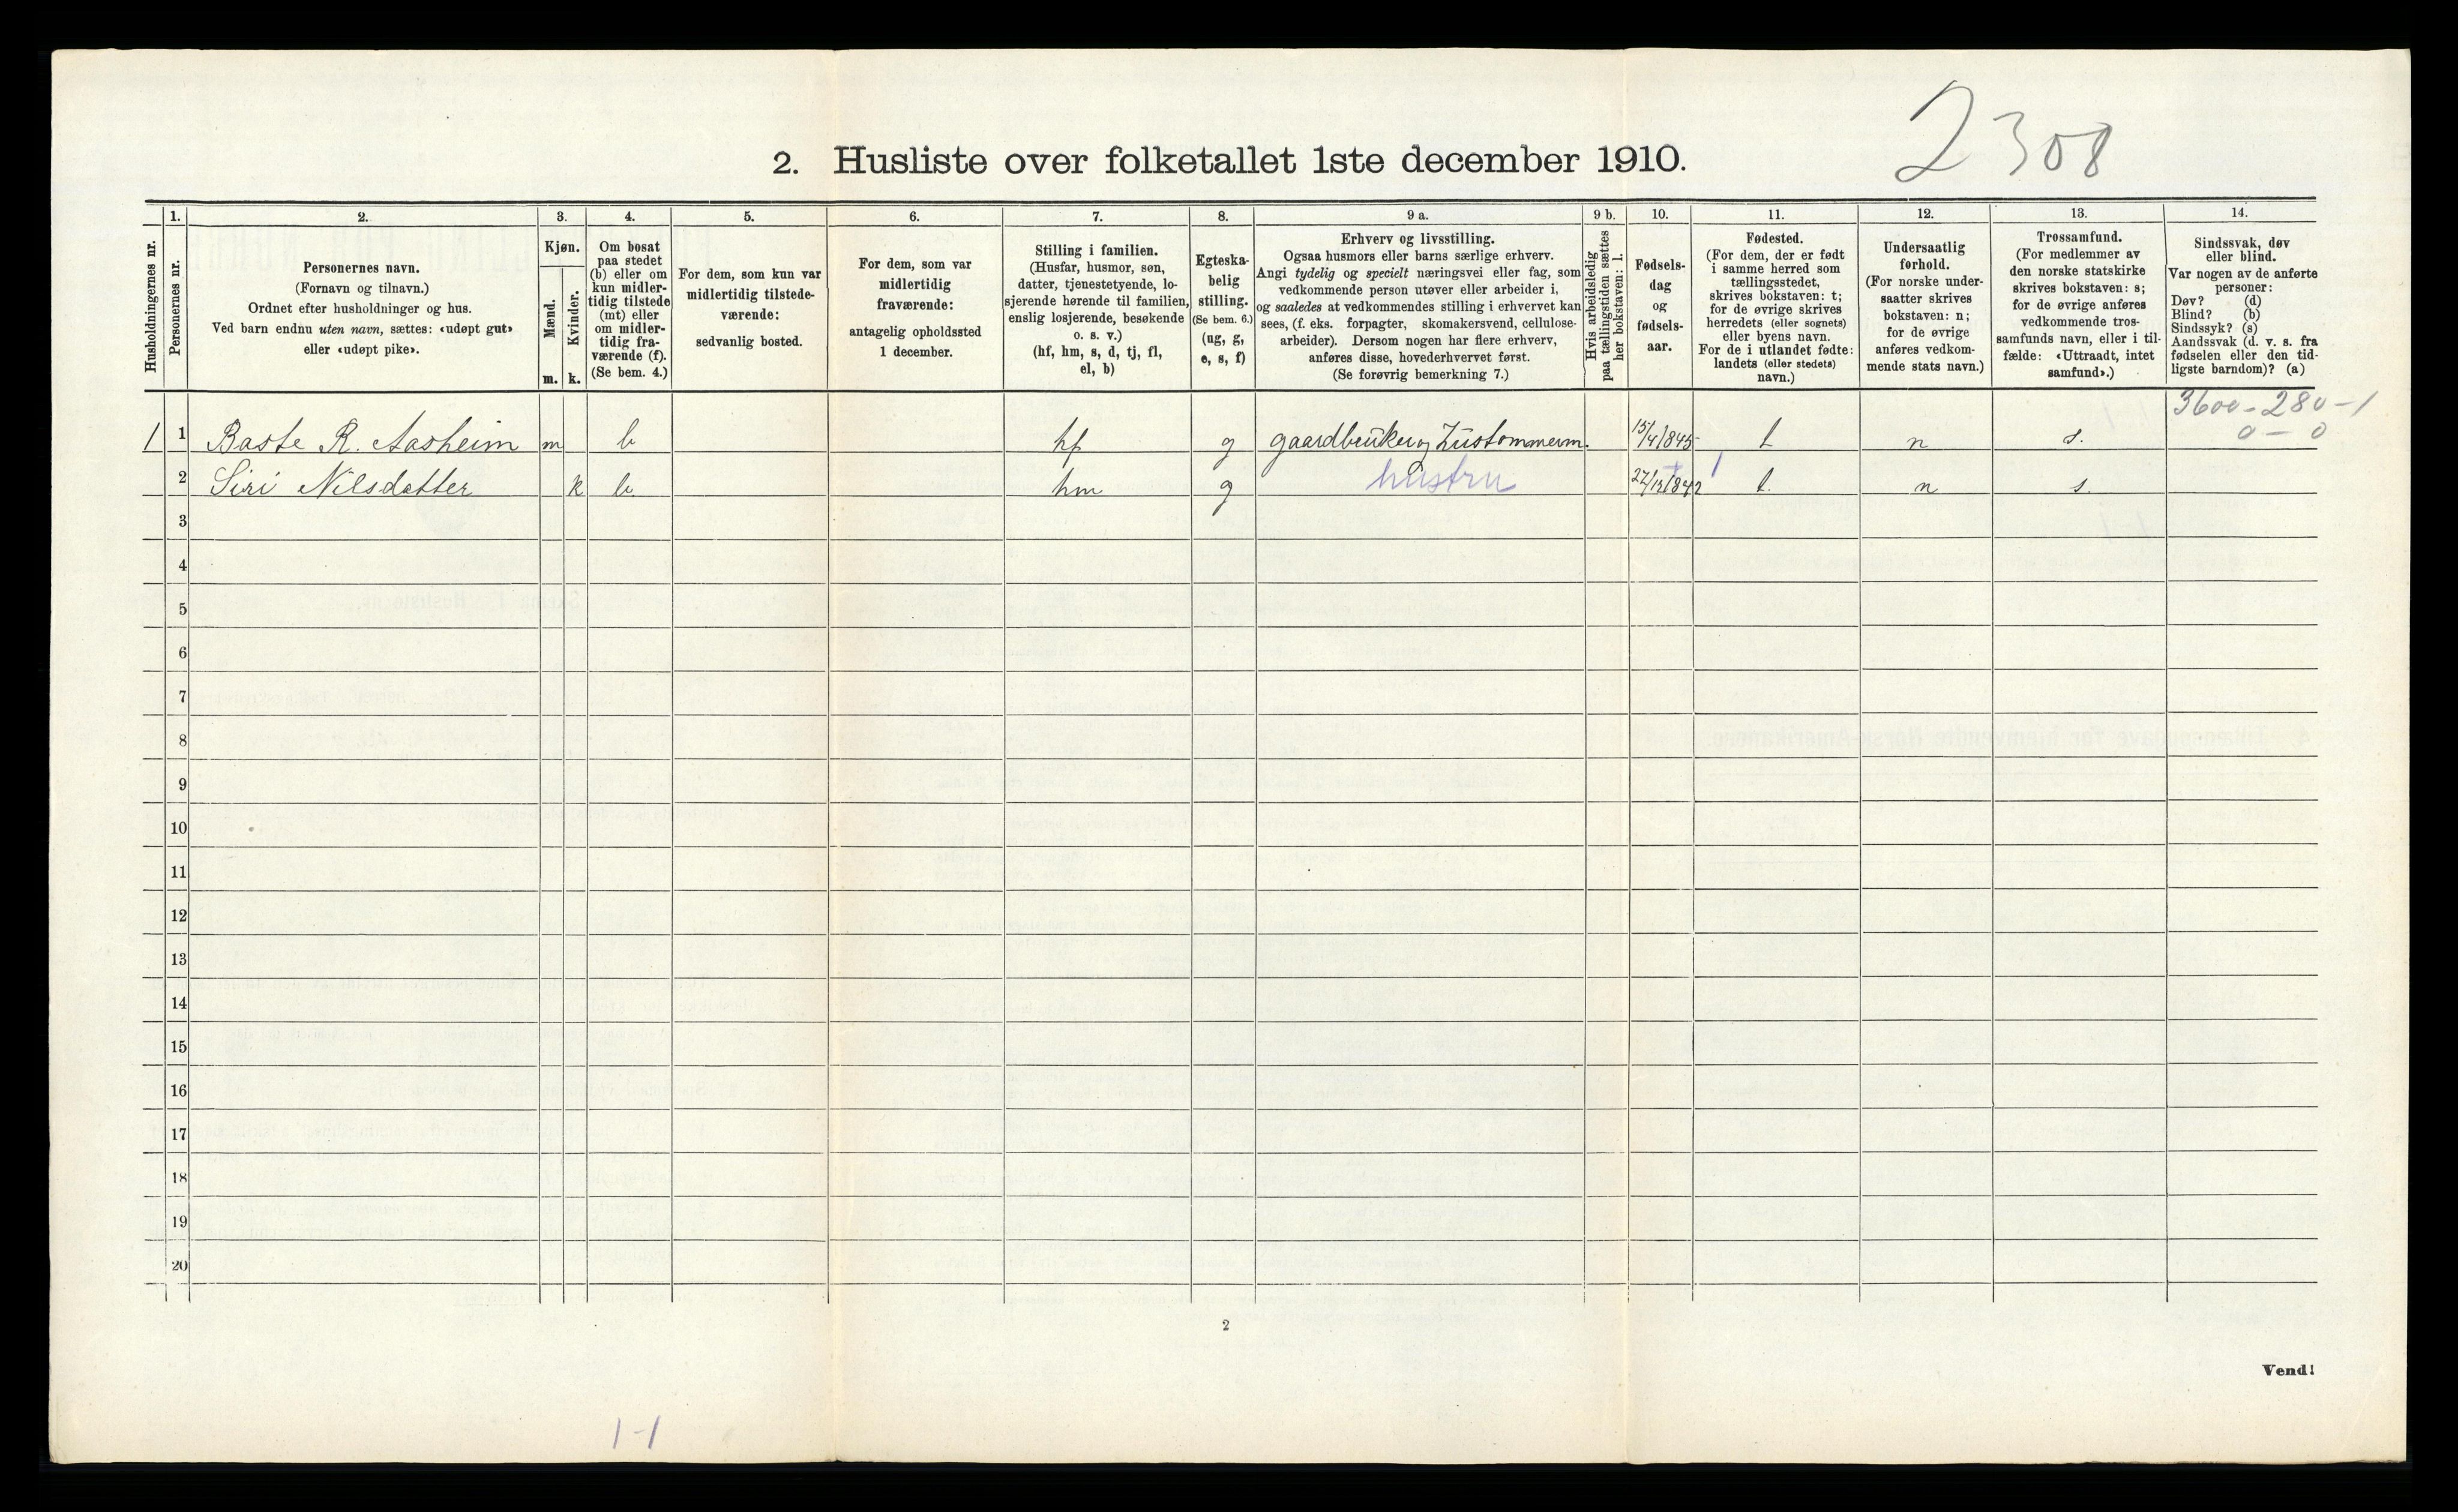 2308
2. Husliste over folketallet 1ste december 1910.
1. 2. 3. 4. 5. 6. 7. 8. 9 a. 9 b. 10. 11. 12. 13. 14.
Husholdningernes nr.
Personernes nr.
Personernes navn.
(Fornavn og tilnavn.)
Ordnet efter husholdninger og hus.
Ved barn endnu uten navn, sættes: «udøpt gut»
eller «udøpt pike».
Kjøn.
Mænd.
Kvinder.
m. k.
Om bosat
paa stedet
(b) eller om
kun midler-
tidig tilstede
(mt) eller
om midler-
tidig fra-
værende (f).
(Se bem. 4.)
For dem, som kun var
midlertidig tilstede-
værende:
sedvanlig bosted.
For dem, som var
midlertidig
fraværende:
antagelig opholdssted
1 december.
Stilling i familien.
(Husfar, husmor, søn,
datter, tjenestetyende, lo-
sjerende hørende til familien,
enslig losjerende, besøkende
o. s. v.)
(hf, hm, s, d, tj, fl,
el, b)
Egteska-
belig
stilling.
(Se bem. 6.)
(ug, g,
e, s, f)
Erhverv og livsstilling.
Ogsaa husmors eller barns særlige erhverv.
Angi tydelig og specielt næringsvei eller fag, som
vedkommende person utøver eller arbeider i,
og saaledes at vedkommendes stilling i erhvervet kan
sees, (f. eks. forpagter, skomakersvend, cellulose-
arbeider). Dersom nogen har flere erhverv,
anføres disse, hovederhvervet først.
(Se forøvrig bemerkning 7.)
Hvis arbeidsledig
paa tællingstiden sættes
her bokstaven: l.
Fødsels-
dag
og
fødsels-
aar.
Fødested.
(For dem, der er født
i samme herred som
tællingsstedet,
skrives bokstaven: t;
for de øvrige skrives
herredets (eller sognets)
eller byens navn.
For de i utlandet fødte:
landets (eller stedets)
navn.)
Undersaatlig
forhold.
(For norske under-
saatter skrives
bokstaven: n;
for de øvrige
anføres vedkom-
mende stats navn.)
Trossamfund.
(For medlemmer av
den norske statskirke
skrives bokstaven: s;
for de øvrige anføres
vedkommende tros-
samfunds navn, eller i til-
fælde: «Uttraadt, intet
samfund».)
Sindssvak, døv
eller blind.
Var nogen av de anførte
personer:
Døv? (d)
Blind? (b)
Sindssyk? (s)
Aandssvak (d. v. s. fra
fødselen eller den tid-
ligste barndom)? (a)
3600-280-1
0-0
1 1 Baste R. Aasheim m b hf g gaardbruker og 15/4 1845 t n s.
2 Siri Nilsdatter k b hm g hustru 1842 t. n s.
3
4
5
6
7
8
9
10
11
12
13
14
15
16
17
18
19
20
2
Vend!
1-1